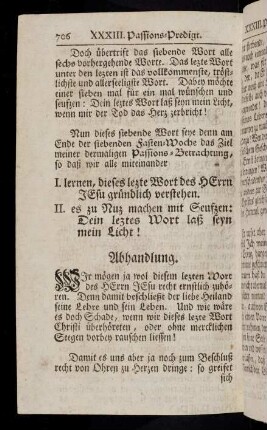 706 XXXIII. Passions-Predigt.
Doch übertrift das siebende Wort alle
sechs vorhergehende Worte. Das lezte Wort
unter den lezten ist das vollkommenste, tröst-
lichste und allerseeligste Wort. Dabey möchte
einer sieben mal für ein mal wünschen und
seufzen: Dein leztes Wort laß seyn mein Licht,
wenn mir der Tod das Herz zerbricht!
Nun dieses siebende Wort seye denn am
Ende der siebenden Fasten-Woche das Ziel
meiner dermaligen Passions-Betrachtung,
so daß wir alle miteinander
I. lernen, dieses lezte Wort des HErrn
JEsu gründlich verstehen.
II. es zu Nuz machen mit Seufzen:
Dein leztes Wort laß seyn
mein Licht!
Abhandlung.
WIr mögen ja wol diesem lezten Wort
des HErrn JEsu recht ernstlich zuhö-
ren. Denn damit beschließt der liebe Heiland
seine Lehre und sein Leben. Und wie wäre
es doch Schade, wenn wir dieses lezte Wort
Christi überhöreten, oder ohne mercklichen
Seegen vorbey rauschen liessen!
Damit es uns aber ja noch zum Beschluß
recht von Ohren zu Herzen dringe: so greifet
sich